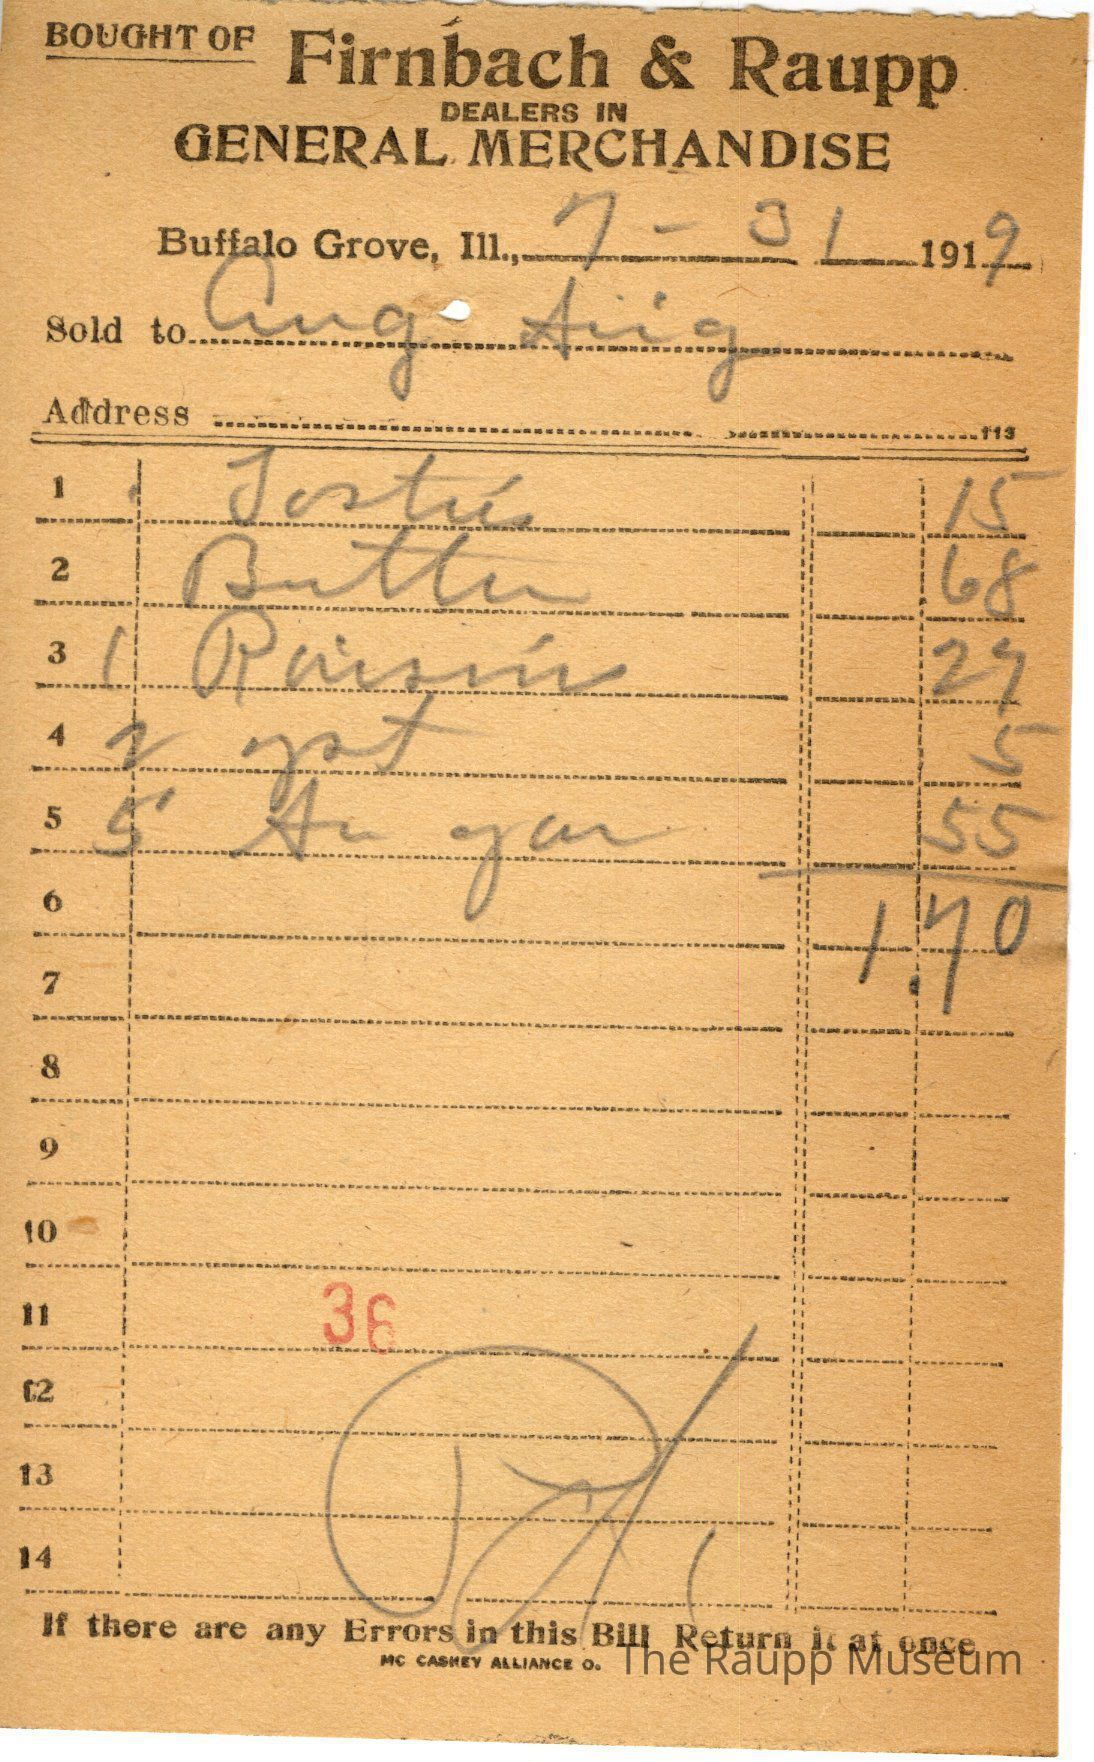 BOUGHT OF Firnbach & Raupp
DEALERS IN
GENERAL MERCHANDISE
Buffalo Grove, Ill., 7 - 31 1919
Sold to Aug
Address 113
1 15
2 Butter 68
3 1 Raisins 27
4 2 yst 5
5 5 Sugar 55
6 1.70
7
8
9
10
11 36
12
13
14
If there are any Errors in this Bill Return it at once
MC CASKEY ALLIANCE O.
The Raupp Museum